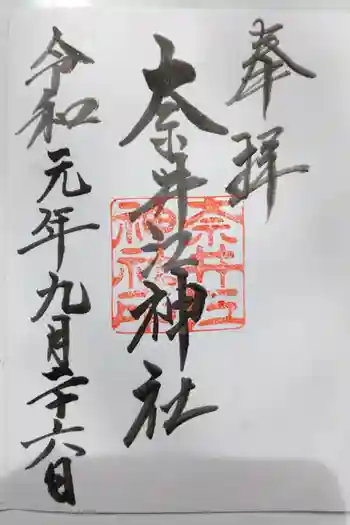 奉拝
奈井江神社
奈井江
神社印
令和元年九月二十六日